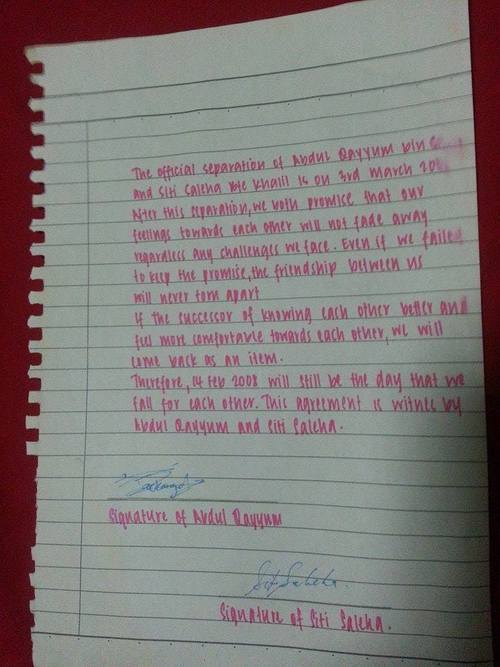 The official separation of Abdul Qayyum bin
and Siti Saleha bte Khalil is on 3rd March
After this separation, we both promise that our
feelings towards each other will not fade away
regardless any challenges we face. Even if we failed
to keep the promise, the friendship between us
will never torn apart
If the successor of knowing each other better and
feel more comfortable towards each other, we will
come back as an item.
Therefore, 14 Feb 2008 will still be the day that we
fall for each other. This agreement is witnes by
Abdul Qayyum and Siti Saleha.
Signature of Abdul Qayyum
Siti Saleha.
Signature of Siti Saleha.